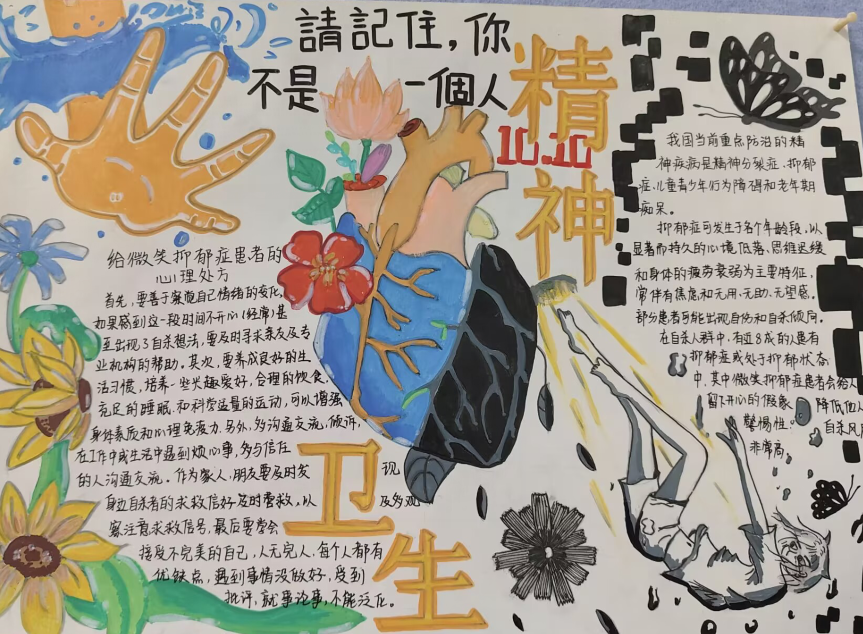 請記住,你
不是一個人
精神
10.10
卫生
给微笑抑郁症患者的
心理处方
首先,要善于察觉自己情绪的变化,
如果感到这一段时间不开心(经常)甚
至出现了自杀想法,要及时寻求亲友及专
业机构的帮助。其次,要养成良好的生
活习惯,培养一些兴趣爱好,合理的饮食,
充足的睡眠和科学适量的运动,可以增强
身体素质和心理免疫力。另外,多沟通交流,倾诉,
在工作中或生活中遇到烦心事,多与信任
的人沟通交流。作为家人,朋友要及时发现
身边自杀者的求救信号及时营救,以及多观
察注意求救信号,最后要学会
接受不完美的自己,人无完人,每个人都有
优缺点,遇到事情没做好,受到
批评,就事论事,不能泛化。
我国当前重点防治的精
神疾病是精神分裂症、抑郁
症、儿童青少年行为障碍和老年期
痴呆。
抑郁症可发生于各个年龄段,以
显著而持久的心境低落、思维迟缓
和身体的疲劳衰弱为主要特征。
常伴有焦虑和无用、无助、无望感。
部分患者可能出现自伤和自杀倾向。
在自杀人群中,有近8成的人患有
抑郁症或处于抑郁状态
中,其中微笑抑郁症患者会给人
留下开心的假象 降低他人
警惕性。 自杀风
非常高。